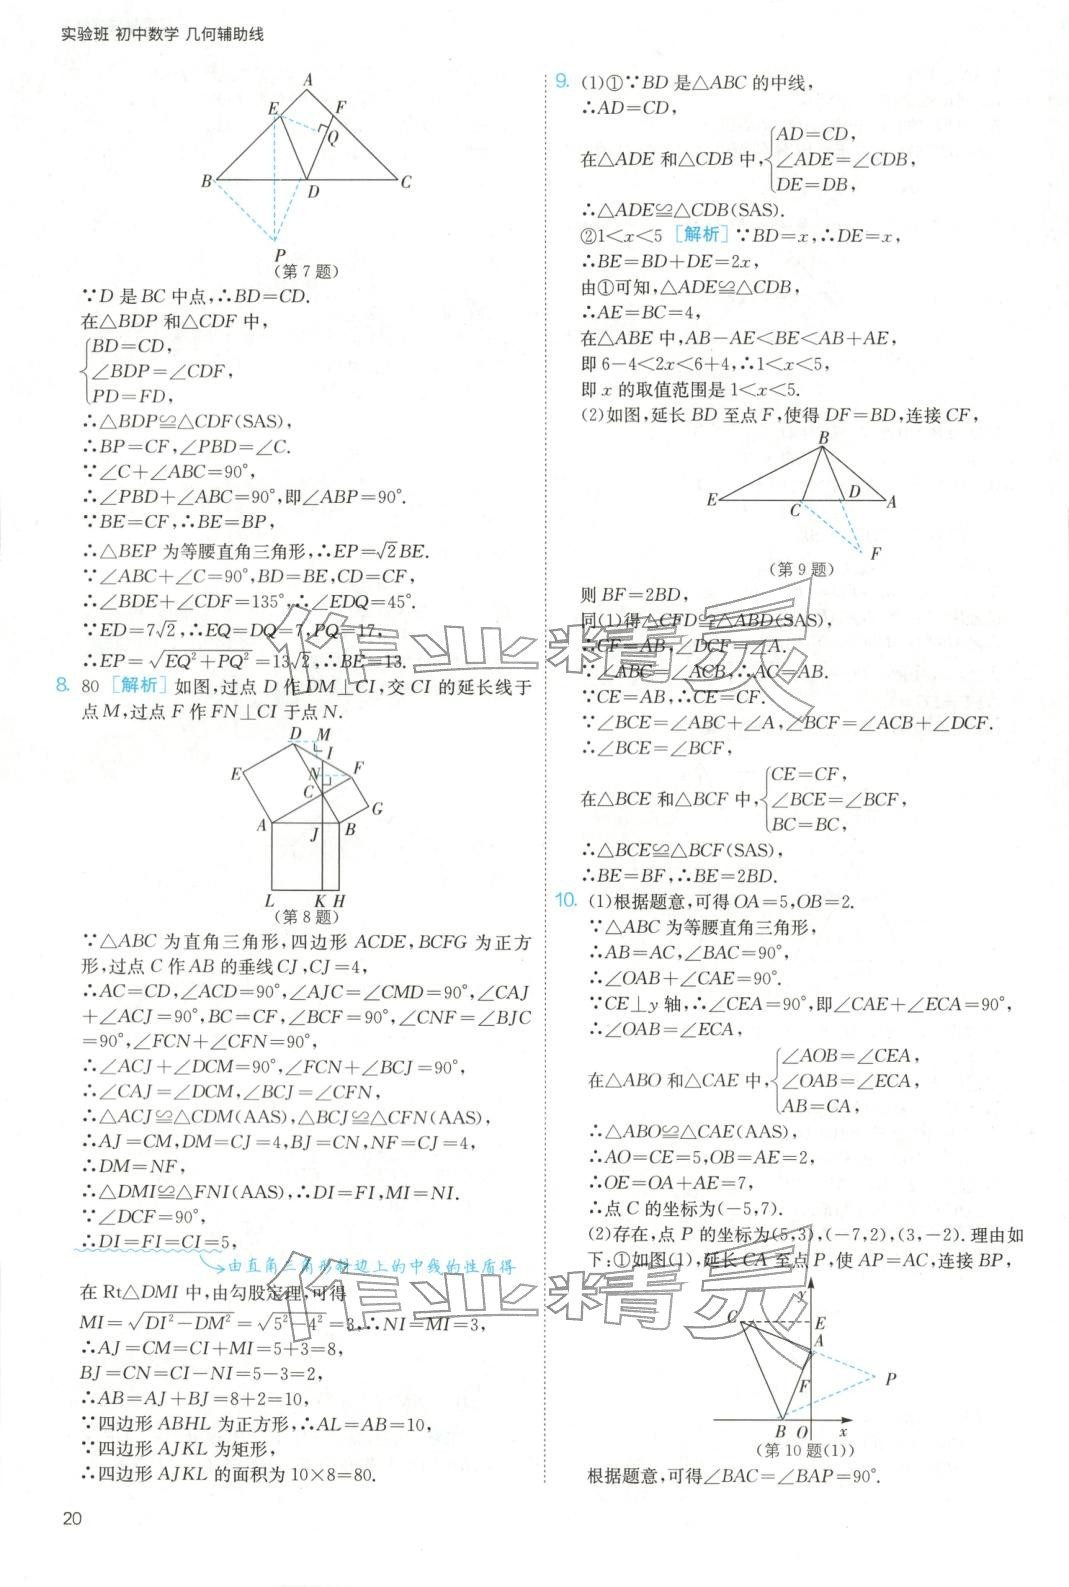 实验班 初中数学 几何辅助线
A
E
F
Q
B
D
C
P
(第7题)
∵D 是 BC 中点,∴BD=CD.
在△BDP 和△CDF 中,
BD=CD,
∠BDP=∠CDF,
PD=FD,
∴△BDP≌△CDF(SAS),
∴BP=CF,∠PBD=∠C.
∵∠C+∠ABC=90°,
∴∠PBD+∠ABC=90°,即∠ABP=90°.
∵BE=CF,∴BE=BP,
∴△BEP 为等腰直角三角形,∴EP=√2BE.
∵∠ABC+∠C=90°,BD=BE,CD=CF,
∴∠BDE+∠CDF=135°,∴∠EDQ=45°.
∵ED=7√2,∴EQ=DQ=7,PQ=17,
∴EP=√(EQ²+PQ²)=13√2,∴BE=13.
8. 80 [解析] 如图,过点 D 作 DM⊥CI,交 CI 的延长线于
点 M,过点 F 作 FN⊥CI 于点 N.
D M
I
E
N
F
C
G
A
J
B
L
K H
(第8题)
∵△ABC 为直角三角形,四边形 ACDE,BCFG 为正方
形,过点 C 作 AB 的垂线 CJ,CJ=4,
∴AC=CD,∠ACD=90°,∠AJC=∠CMD=90°,∠CAJ
+∠ACJ=90°,BC=CF,∠BCF=90°,∠CNF=∠BJC
=90°,∠FCN+∠CFN=90°,
∴∠ACJ+∠DCM=90°,∠FCN+∠BCJ=90°,
∴∠CAJ=∠DCM,∠BCJ=∠CFN,
∴△ACJ≌△CDM(AAS),△BCJ≌△CFN(AAS),
∴AJ=CM,DM=CJ=4,BJ=CN,NF=CJ=4,
∴DM=NF,
∴△DMI≌△FNI(AAS),∴DI=FI,MI=NI.
∵∠DCF=90°,
∴DI=FI=CI=5,
由直角三角形斜边上的中线的性质得
在 Rt△DMI 中,由勾股定理,可得
MI=√(DI²−DM²)=√(5²−4²)=3,∴NI=MI=3,
∴AJ=CM=CI+MI=5+3=8,
BJ=CN=CI−NI=5−3=2,
∴AB=AJ+BJ=8+2=10,
∵四边形 ABHL 为正方形,∴AL=AB=10,
∵四边形 AJKL 为矩形,
∴四边形 AJKL 的面积为 10×8=80.
20
9. (1)①∵BD 是△ABC 的中线,
∴AD=CD,
在△ADE 和△CDB 中,
AD=CD,
∠ADE=∠CDB,
DE=DB,
∴△ADE≌△CDB(SAS).
②1<x<5 [解析] ∵BD=x,∴DE=x,
∴BE=BD+DE=2x,
由①可知,△ADE≌△CDB,
∴AE=BC=4,
在△ABE 中,AB−AE<BE<AB+AE,
即 6−4<2x<6+4,∴1<x<5,
即 x 的取值范围是 1<x<5.
(2)如图,延长 BD 至点 F,使得 DF=BD,连接 CF,
B
E
C
D
A
F
(第9题)
则 BF=2BD,
同(1)得△CFD≌△ABD(SAS),
∴CF=AB,∠DCF=∠A.
∵∠ABC=∠ACB,∴AC=AB.
∵CE=AB,∴CE=CF.
∵∠BCE=∠ABC+∠A,∠BCF=∠ACB+∠DCF.
∴∠BCE=∠BCF,
在△BCE 和△BCF 中,
CE=CF,
∠BCE=∠BCF,
BC=BC,
∴△BCE≌△BCF(SAS),
∴BE=BF,∴BE=2BD.
10. (1)根据题意,可得 OA=5,OB=2.
∵△ABC 为等腰直角三角形,
∴AB=AC,∠BAC=90°,
∴∠OAB+∠CAE=90°.
∵CE⊥y 轴,∴∠CEA=90°,即∠CAE+∠ECA=90°,
∴∠OAB=∠ECA,
在△ABO 和△CAE 中,
∠AOB=∠CEA,
∠OAB=∠ECA,
AB=CA,
∴△ABO≌△CAE(AAS),
∴AO=CE=5,OB=AE=2,
∴OE=OA+AE=7,
∴点 C 的坐标为(−5,7).
(2)存在,点 P 的坐标为(5,3),(−7,2),(3,−2).理由如
下:①如图(1),延长 CA 至点 P,使 AP=AC,连接 BP,
y
C
E
A
F
P
B O x
(第10题(1))
根据题意,可得∠BAC=∠BAP=90°.
作业精灵
作业精灵